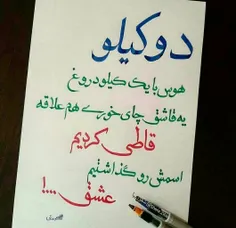 دو کیلو
هوس با یک کیلو دروغ
یه قاشق چای خوری هم علاقه
قاطی کردیم
اسمش رو گذاشتیم
عشق ....!